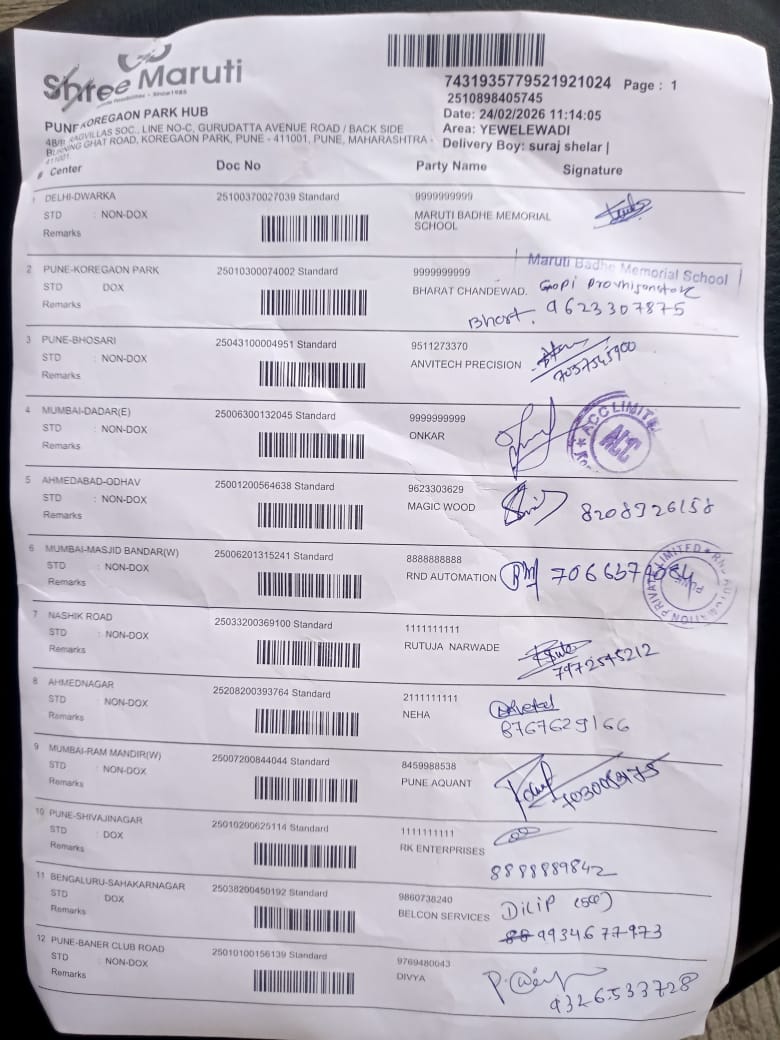 Shree Maruti
7431935779521921024 Page : 1
2510898405745
Date: 24/02/2026 11:14:05
Area: YEWELEWADI
Delivery Boy: suraj shelar |
PUNE KOREGAON PARK HUB
SOC., LINE NO-C, GURUDATTA AVENUE ROAD / BACK SIDE
GHAT ROAD, KOREGAON PARK, PUNE - 411001, PUNE, MAHARASHTRA -
411001
# Center Doc No Party Name Signature
1 DELHI-DWARKA 25100370027039 Standard 9999999999
STD : NON-DOX MARUTI BADHE MEMORIAL
SCHOOL
Remarks
Maruti Badhe Memorial School
2 PUNE-KOREGAON PARK 25010300074002 Standard 9999999999
STD : DOX BHARAT CHANDEWAD. Gopi
Remarks
Bhart. 9623307875
3 PUNE-BHOSARI 25043100004951 Standard 9511273370
STD : NON-DOX ANVITECH PRECISION
Remarks
7057545900
4 MUMBAI-DADAR(E) 25006300132045 Standard 9999999999
STD : NON-DOX ONKAR
Remarks
ACC LIMITED
ACC
5 AHMEDABAD-ODHAV 25001200564638 Standard 9623303629
STD : NON-DOX MAGIC WOOD
Remarks
8208926158
6 MUMBAI-MASJID BANDAR(W) 25006201315241 Standard 8888888888
STD : NON-DOX RND AUTOMATION
Remarks
RND AUTOMATION PRIVATE LIMITED
PUNE
7 NASHIK ROAD 25033200369100 Standard 1111111111
STD : NON-DOX RUTUJA NARWADE
Remarks
7972545212
8 AHMEDNAGAR 25208200393764 Standard 2111111111
STD : NON-DOX NEHA
Remarks
8767629166
9 MUMBAI-RAM MANDIR(W) 25007200844044 Standard 8459988538
STD : NON-DOX PUNE AQUANT
Remarks
10 PUNE-SHIVAJINAGAR 25010200625114 Standard 1111111111
STD : DOX RK ENTERPRISES
Remarks
8888889842
11 BENGALURU-SAHAKARNAGAR 25038200450192 Standard 9860738240
STD : DOX BELCON SERVICES DILIP
Remarks
9934677973
12 PUNE-BANER CLUB ROAD 25010100156139 Standard 9769480043
STD : NON-DOX DIVYA
Remarks
9326533728